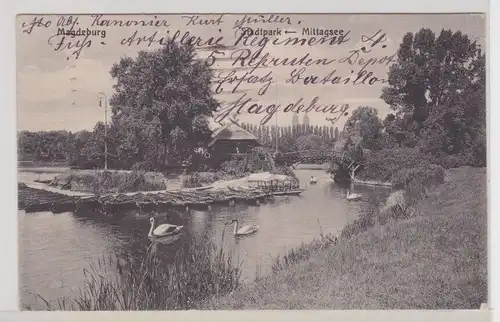 Abs. Kanonier Kurt Müller.
Magdeburg Stadtpark — Mittagsee
Fuß- Artillerie Regiment 4.
5 Rekruten Depot
Ersatz Bataillon
Magdeburg.